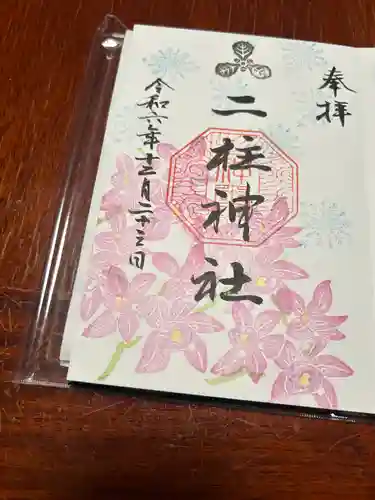 奉拝
二柱神社
令和六年十二月二十三日